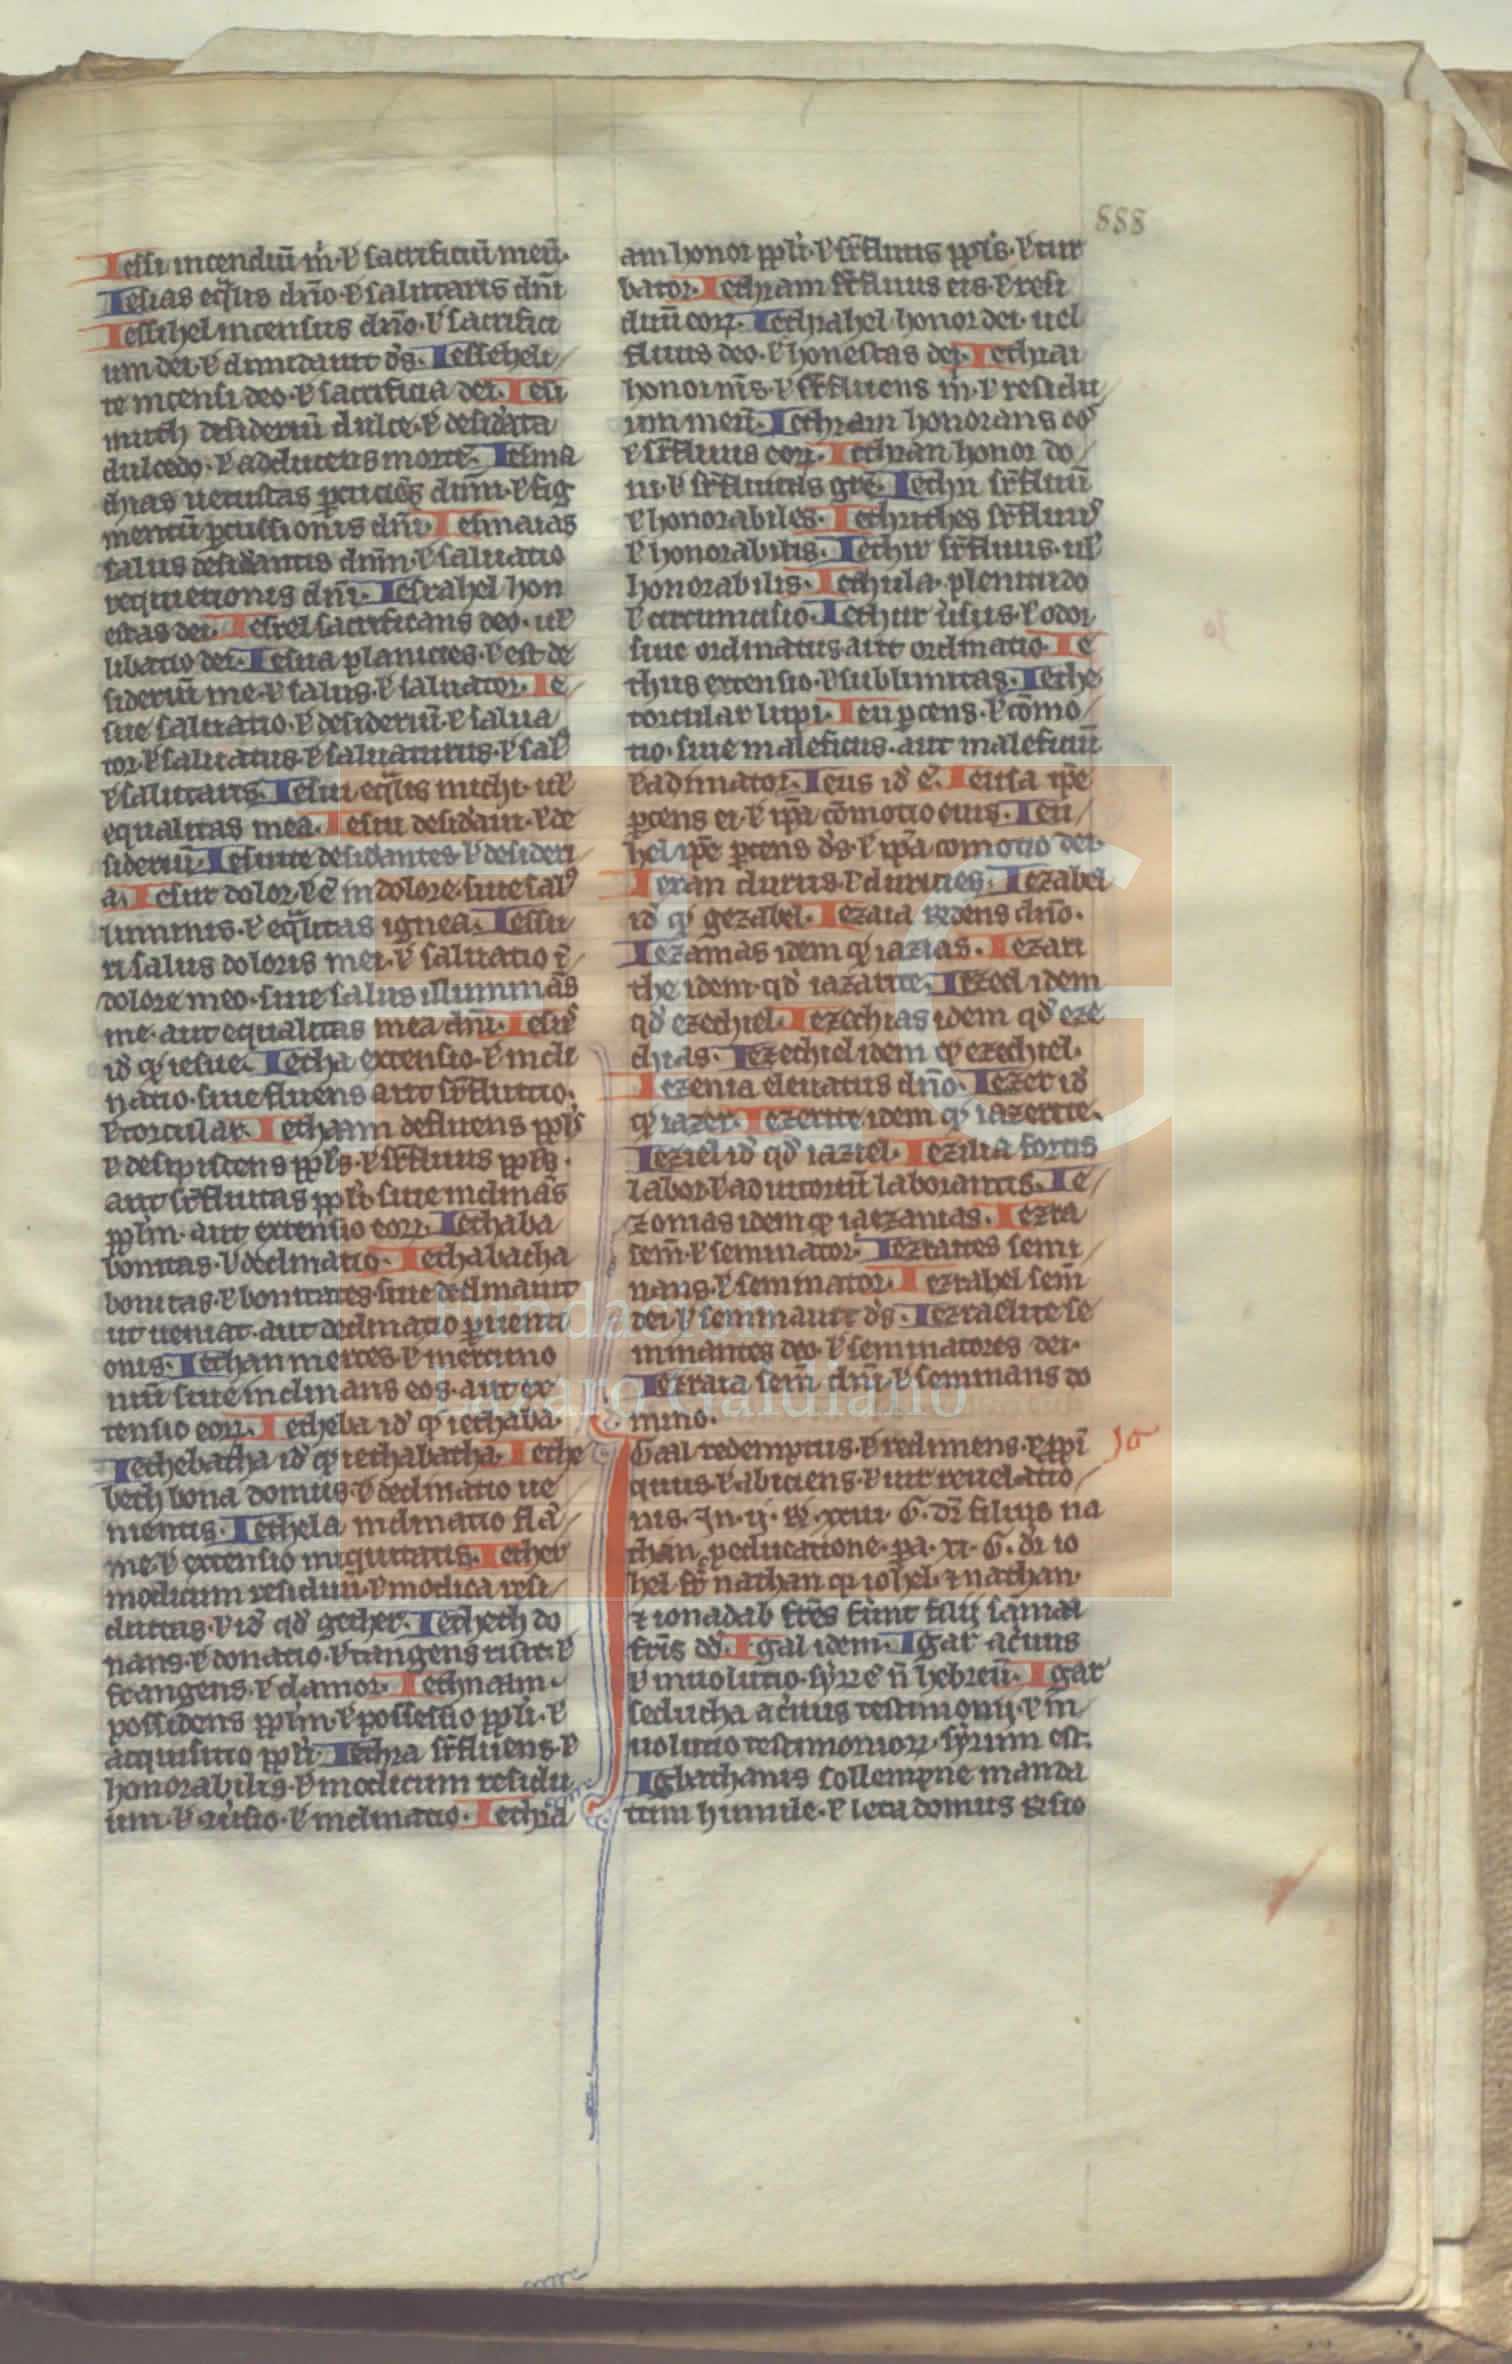 888
Iessi incendiū m̄. ł sacrificiū meū.
Iesias eq̄lis dn̄o. ł salutaris dn̄i
Iessihel incensus dn̄o. ł sacrifici
um dei. ł dimidauit ds̄. Iesseheli
te incensi deo. ł sacrificia dei. Iesi
muth desideriū dulce. ł desid'ata
dulcedo. ł adducens mortē. Iesma
chias uetustas dn̄m. ł fig
mentū p̄cussionis dn̄i. Iesmaias
salus desid'antis dn̄m. ł saluatio
requietionis dn̄i. Iesrahel hon
estas dei. Iesrel sacrificans deo. ul'
libatio dei. Iesua planicies. ł est de
sideriū me. ł salus. ł saluator. Ie
sue saluatio. ł desideriū. ł salua
tor. ł saluatus. ł saluaturus. ł sal'
ł salutaris. Iesui eq̄lis michi. ul'
equalitas mea. Iesui desid'aui. ł de
sideriū. Iesuite desid'antes. ł desideri
a. Iesut dolor. ł ē in dolore. siue sal'
luminis. ł eq̄litas ignea. Iessu
ri salus doloris mei. ł saluatio ī
dolore meo. siue salus illuminās
me. aut equalitas mea dn̄i. Iesue
id' q' iesue. Ietha extensio. ł incli
natio. siue fluens aut sr̄fluitio.
ł torcular. Ietham defluens ppl's
ł desipiscens ppl's. ł sr̄fluus ppl's.
aut sr̄fluitas ppl'i. siue inclinās
ppl'm. aut extensio eoꝝ. Iethaba
bonitas. ł declinatio. Iethabatha
bonitas. ł bonitates. siue declinauit
ut ueniat. aut declinatio p̄uenti
onis. Iethan mertes. ł
niū siue inclinans eos. aut ex
tensio eoꝝ. Ietheba id' q' iethaba.
Iethebatha id' q' iethabatha. Iethe
beth bona domus. ł declinatio ue
nientis. Iethela inclinatio flā
me. ł extensio iniquitatis. Iether
modicum residuū. ł modica resi
duitas. ł id' qd' gether. Ietheth do
nans. ł donatio. ł tangens ł
frangens. ł clamor. Iethnaim
possidens ppl'm. ł possessio ppl'i. ł
acquisitio ppl'i. Iethra sr̄fluens. ł
honorabilis. ł modicum residu
um. ł uisio. ł inclinatio. Iethra
am honor ppl'i. ł sr̄fluus ppl's. ł tur
bator. Iethram sr̄fluus eis. ł resi
duū eoꝝ. Iethrahel honor dei. uel
fluus deo. ł honestas dei. Iethrai
honor m̄s. ł sr̄fluens m̄. ł residu
um meū. Iethram honorans eos
ł sr̄fluus eoꝝ. Iethran honor do
ni. ł sr̄fluitas grē. Iethri sr̄fluū
ł honorabiles. Iethrithes sr̄fluus
ł honorabilis. Iethro sr̄fluus. ul'
honorabilis. Iethula. plenitudo
ł circumcisio. Iethur uisus. ł odor
siue ordinatus aut ordinatio. Ie
thus extensio. ł sublimitas. Iethe
torcular lupi. Ieu p̄cens. ł cōmo
tio. siue maleficus. aut maleficiū
ł adimator. Ieus id' ē. Ieusa ip̄e
p̄cens ei. ł ip̄a cōmotio eius. Ieu
hel ip̄e p̄cens ds̄. ł ip̄a comotio dei.
Iexan durus. ł durities. Iezabel
id' q' gezabel. Iezaia dn̄o.
Iezamas idem q' iazias. Iezari
the idem qd' iazarite. Iezecl idem
qd' ezechiel. Iezechias idem qd' eze
chias. Iezechiel idem q' ezechiel.
Iezenia eleuatus dn̄o. Iezer id'
q' iazer. Iezerite idem q' iazerite.
Ieziel id' qd' iaziel. Iezilia fortis
labor. ł adiutoriū laborantis. Ie
zonias idem q' iaezanias. Iezra
sem̄. ł seminator. Iezraites semi
nans. ł seminator. Iezrahel sem̄
dei. ł seminauit ds̄. Iezraelite se
minantes deo. ł seminatores dei.
Iezraia sem̄ dn̄i. ł seminans do
mino.
Gal redemptus. ł redimens. ł ppi
quus. ł abiciens. ł uir reuelatio
nis. In. ij. R̄. xxiii. G. dr̄ filius na
than. p educatione. pa. xi. G. dr̄ io
hel. fr̄ nathan q' iohel. ⁊ nathan.
⁊ ionadab fr̄es sunt filij samaa
fr̄is dd'. Igal idem. Igar aceruus
ł inuolutio. syrr̄ ē n̄ hebreū. Igar
seducha ac̄uus testimonij. ł in
uolutio testimonioꝝ. syrum est.
Igbathanis sollempne manda
tum humile. ł leta domus
Fundación
Lázaro Galdiano